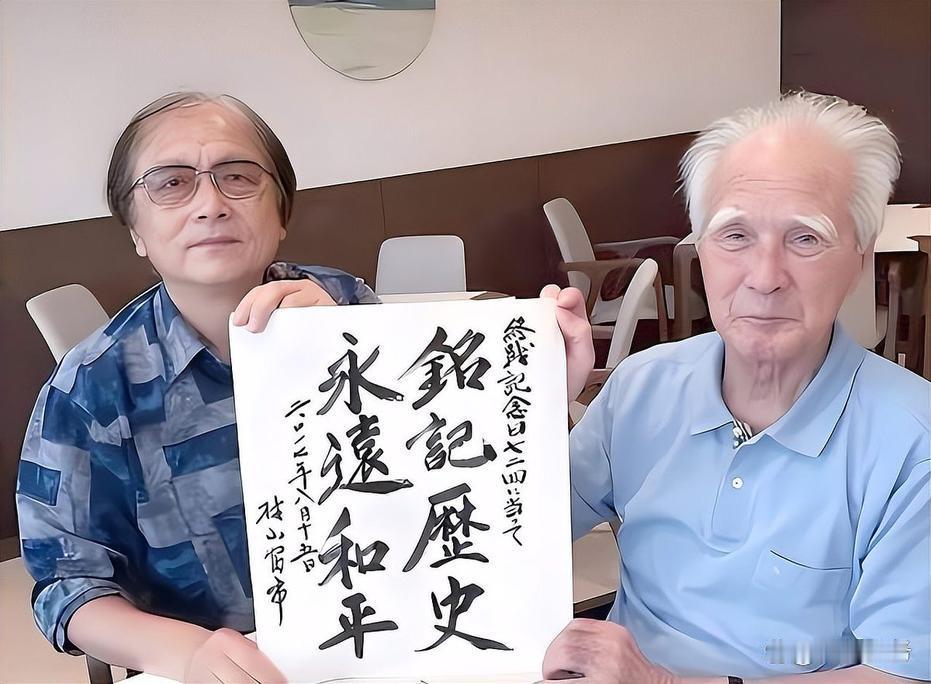 終戦記念日七二回に当って
銘記歴史
永遠和平
二〇一七年八月十五日
村山富市